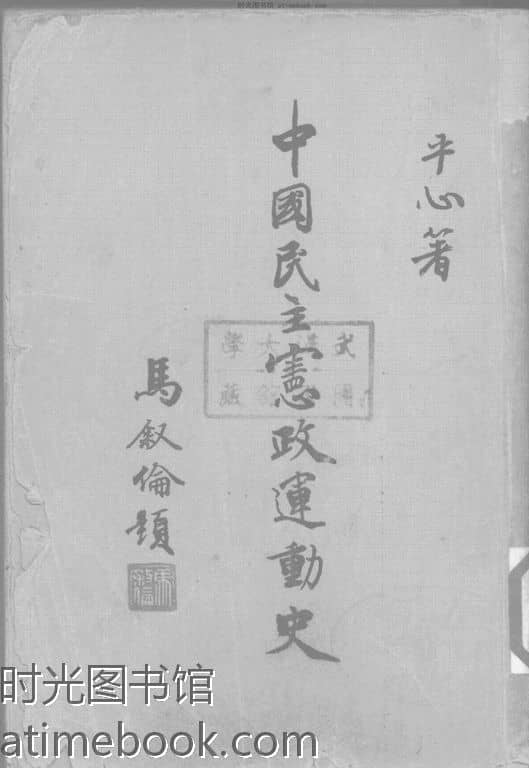 时光图书馆 atimebook.com
平心著
中國民主憲政運動史
武漢大學
圖書館藏
馬叙倫題
时光图书馆
atimebook.com